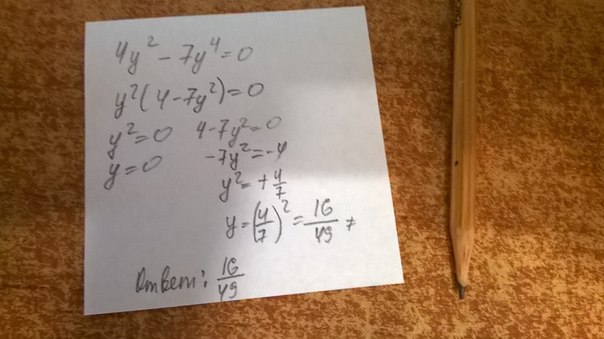 4y² - 7y⁴ = 0
y²(4 - 7y²) = 0
y² = 0 4 - 7y² = 0
y = 0 -7y² = -4
y² = + 4/7
y = (4/7)² = 16/49
Ответ: 16/49